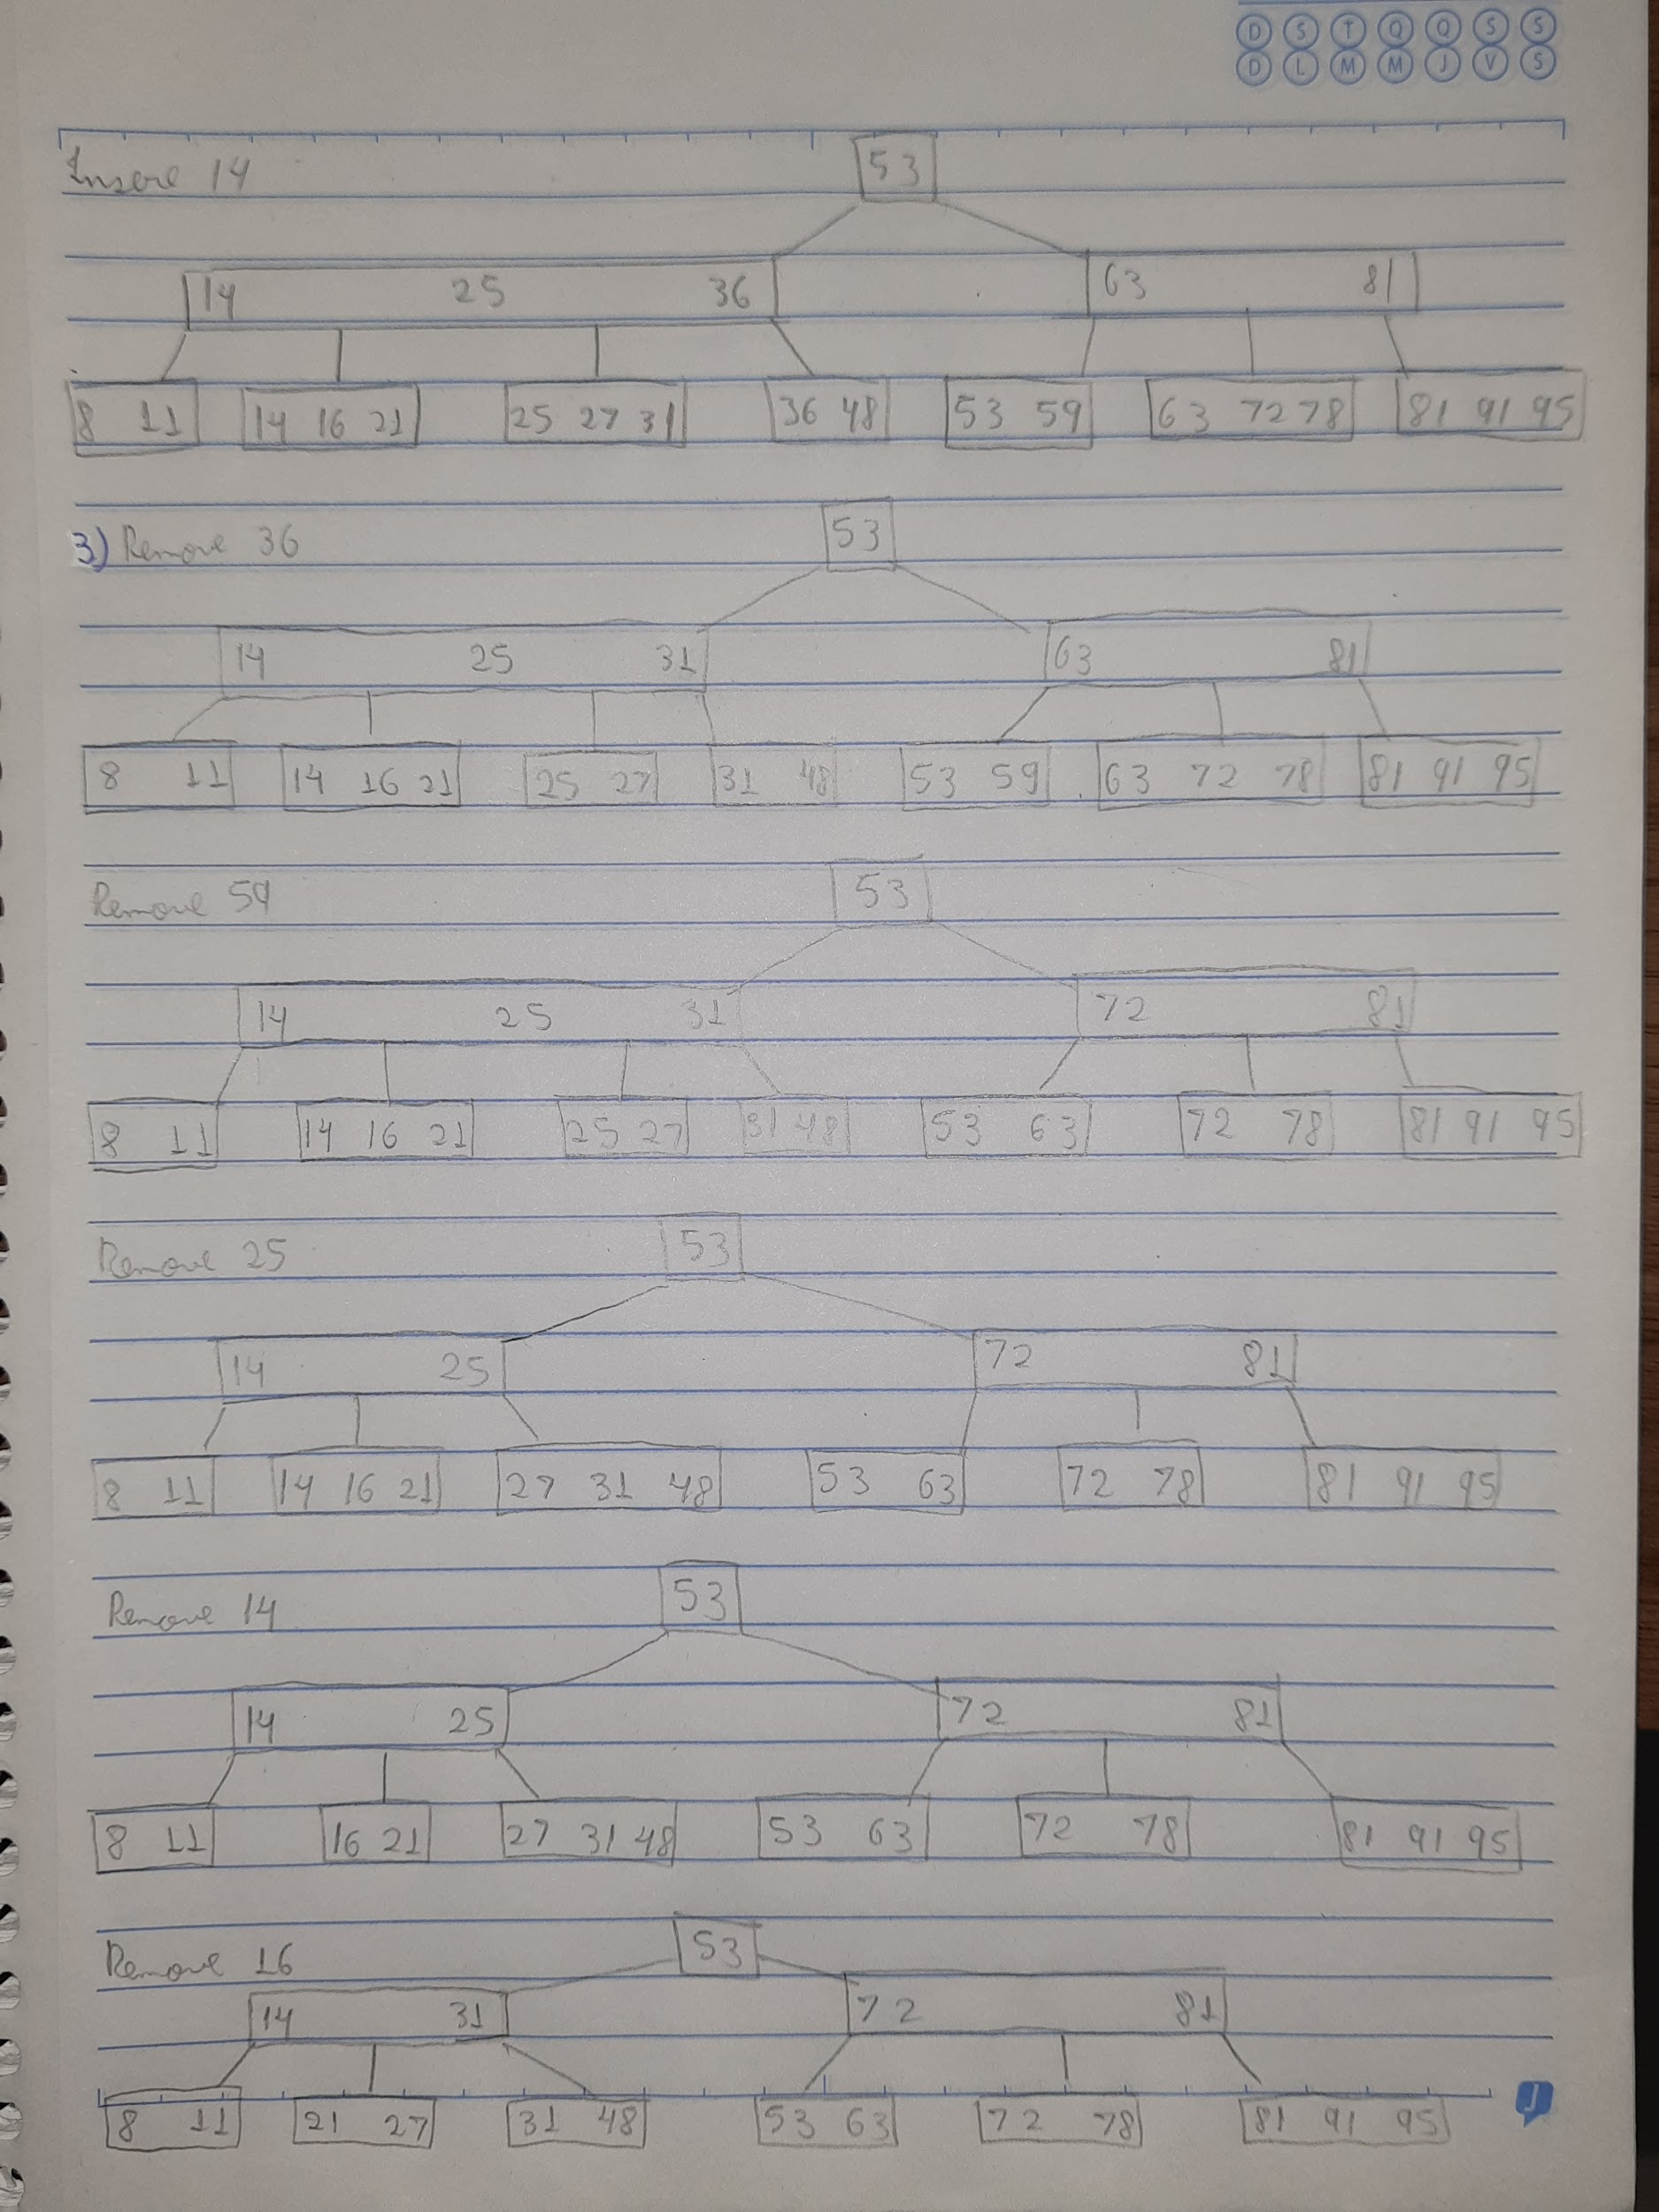 D S T Q Q S S
D L M M J V S
Insere 14
53
14 25 36 63 81
8 11 14 16 21 25 27 31 36 48 53 59 63 72 78 81 91 95
3) Remove 36
53
14 25 31 63 81
8 11 14 16 21 25 27 31 48 53 59 63 72 78 81 91 95
Remove 59
53
14 25 31 72 81
8 11 14 16 21 25 27 31 48 53 63 72 78 81 91 95
Remove 25
53
14 25 72 81
8 11 14 16 21 27 31 48 53 63 72 78 81 91 95
Remove 14
53
14 25 72 81
8 11 16 21 27 31 48 53 63 72 78 81 91 95
Remove 16
53
14 31 72 81
8 11 21 27 31 48 53 63 72 78 81 91 95
J